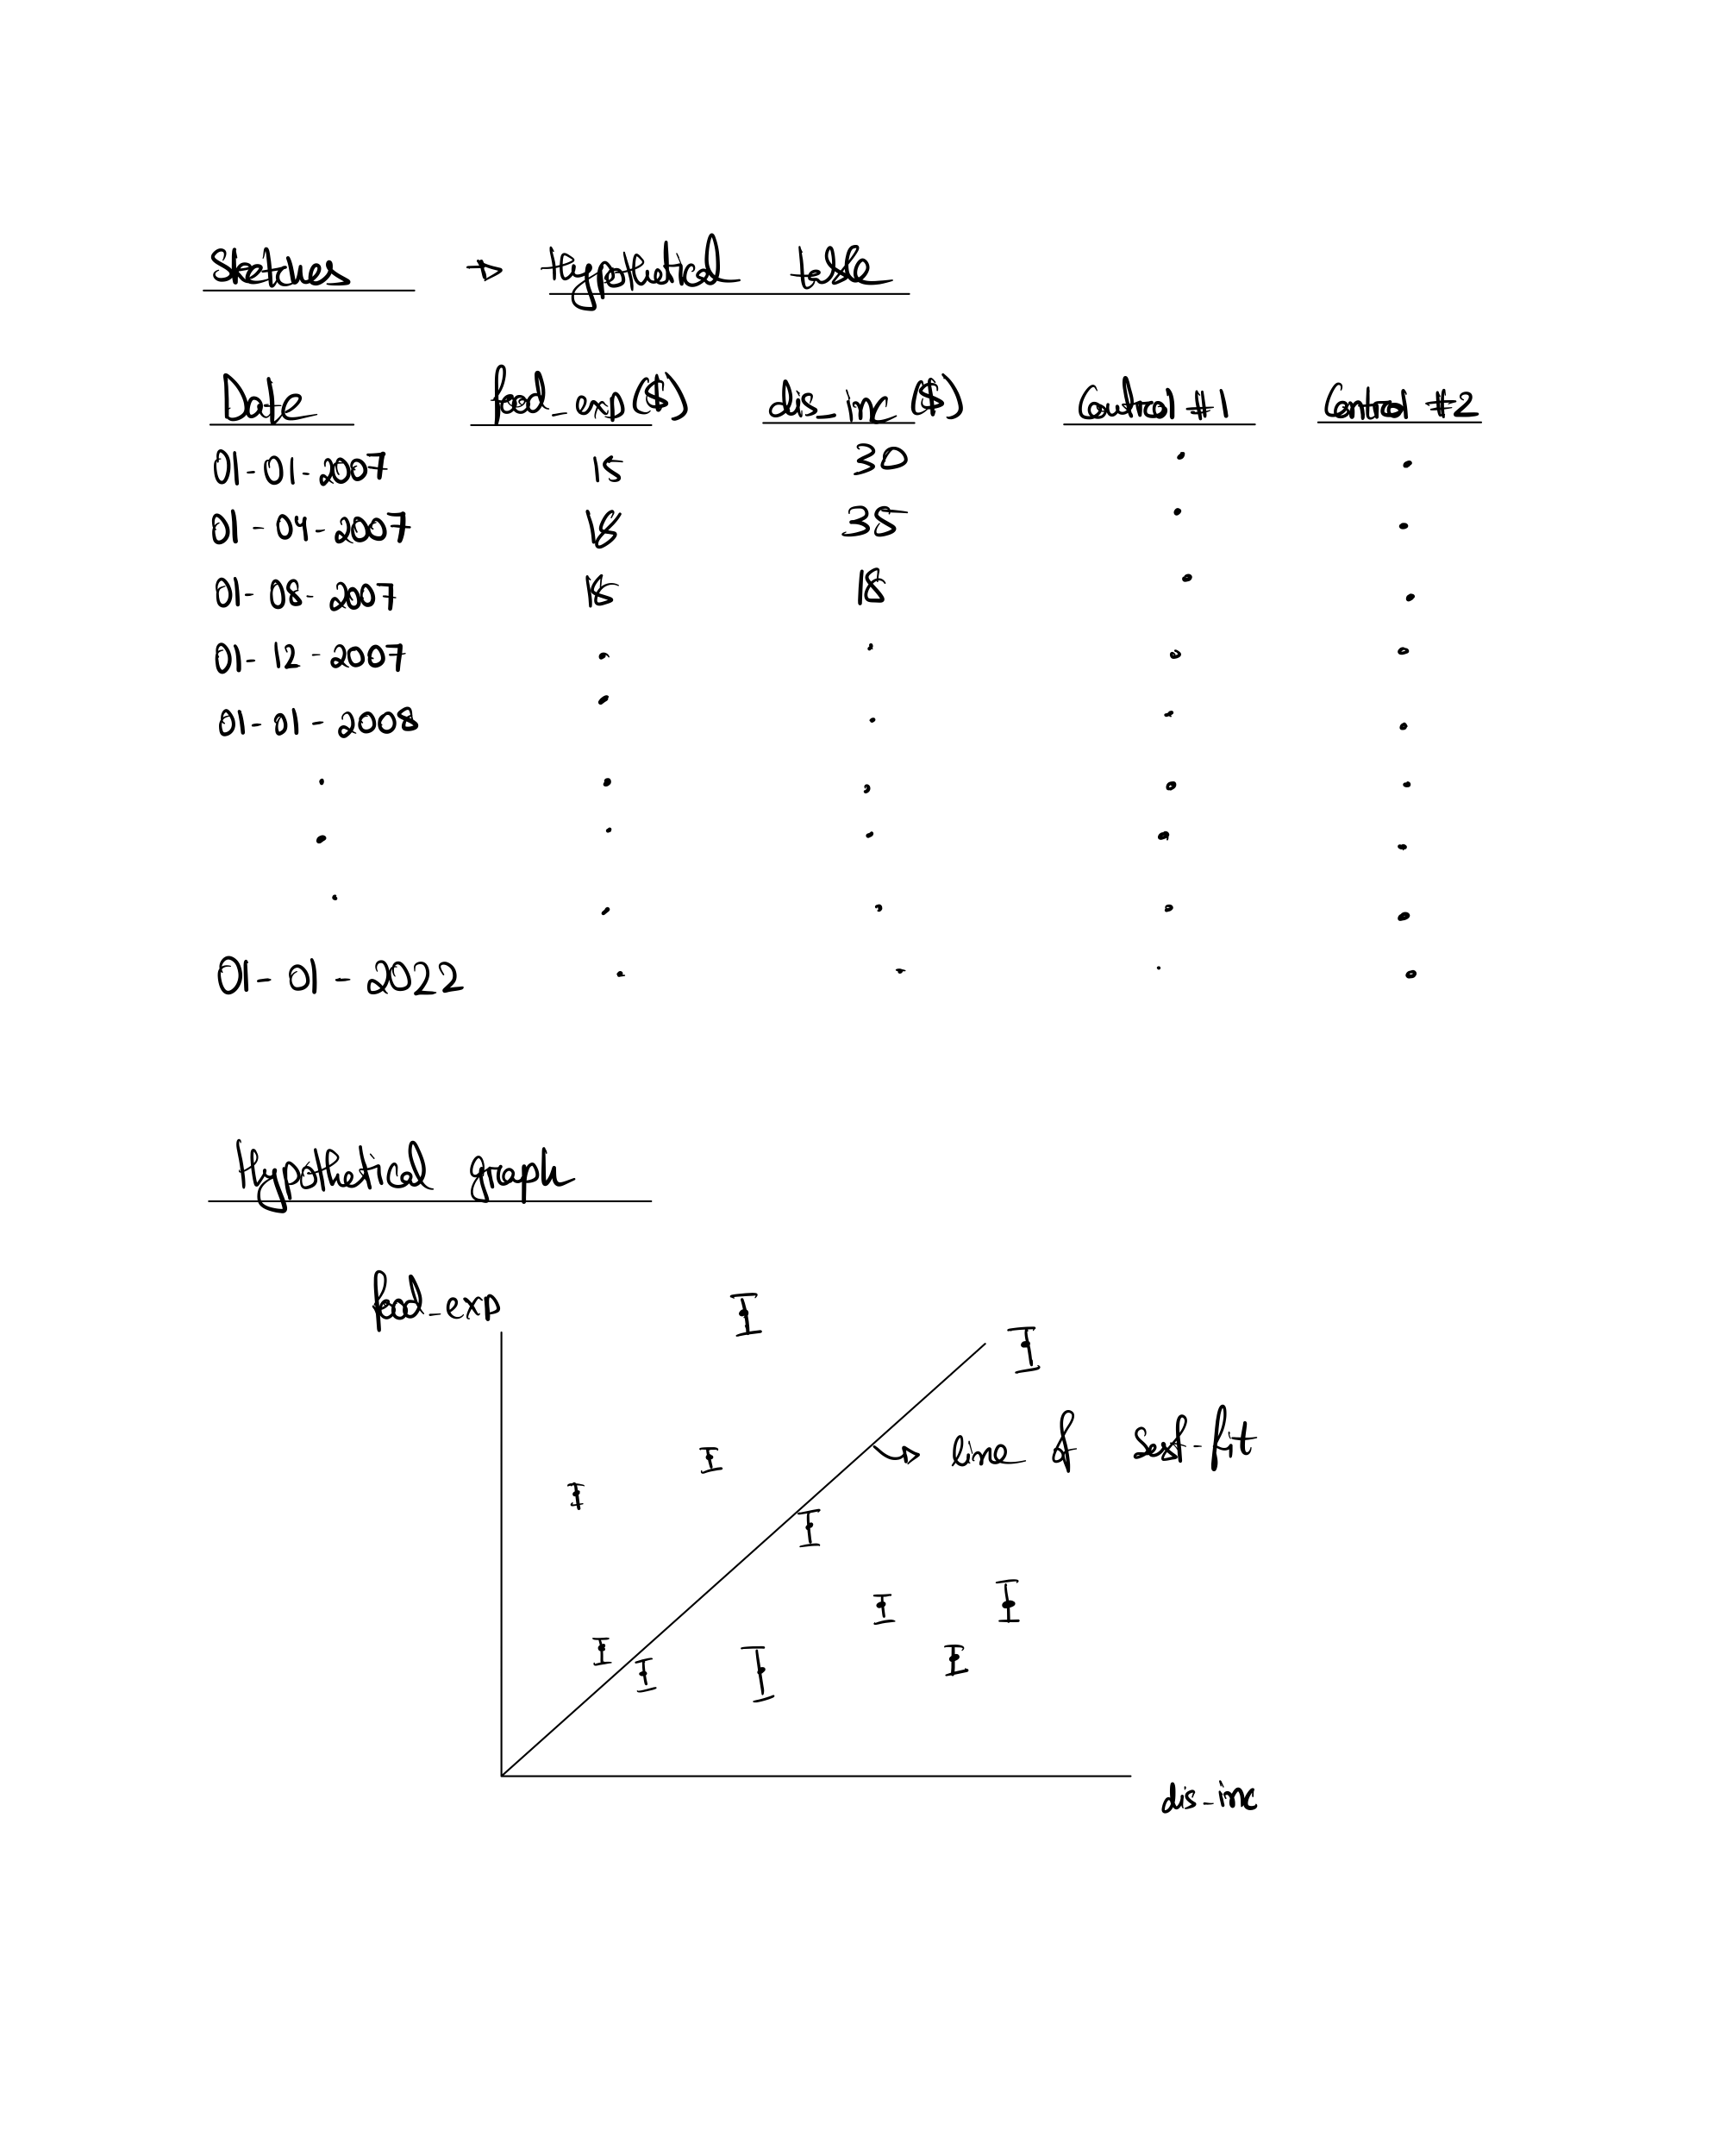 Sketches → Hypothetical table
Date food_exp($) dis_inc($) Control #1 Control #2
01-01-2007 15 30 . .
01-04-2007 18 35 . .
01-08-2007 18 . .
01-12-2007 . . . .
01-01-2008 . . . .
. . . . .
. . . . .
. . . . .
01-01-2022 . . . .
Hypothetical graph
food_exp
line of best-fit
dis_inc